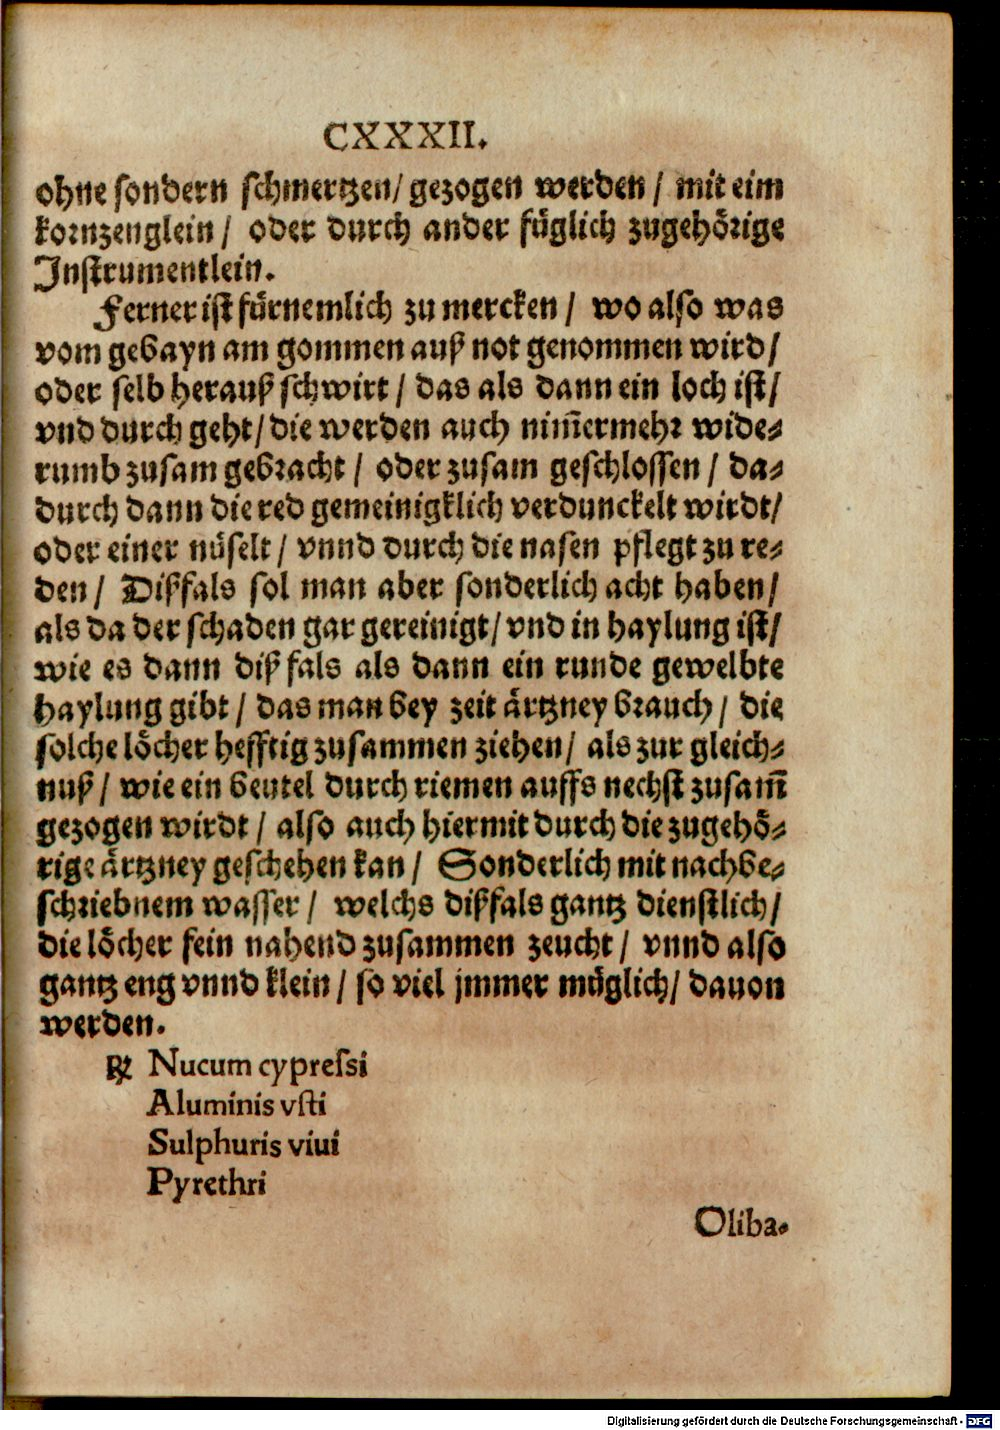 CXXXII.
ohne sondern schmertzen / gezogen werden / mit eim
kornzenglein / oder durch ander fuͤglich zugehoͤrige
Instrumentlein.
Ferner ist fuͤrnemlich zu mercken / wo also was
vom gebayn am gommen auß not genommen wird /
oder selb herauß schwirt / das als dann ein loch ist /
vnd durch geht / die werden auch nim̄ermehr wide⸗
rumb zusam gebracht / oder zusam geschlossen / da⸗
durch dann die red gemeinigklich verdunckelt wirdt /
oder einer nuͤselt / vnnd durch die nasen pflegt zu re⸗
den / Dißfals sol man aber sonderlich acht haben /
als da der schaden gar gereinigt / vnd in haylung ist /
wie es dann diß fals als dann ein runde gewelbte
haylung gibt / das man bey zeit aͤrtzney brauch / die
solche loͤcher hefftig zusammen ziehen / als zur gleich⸗
nuß / wie ein beutel durch riemen auffs nechst zusam̄
gezogen wirdt / also auch hiermit durch die zugehoͤ⸗
rige aͤrtzney geschehen kan / Sonderlich mit nachbe⸗
schriebnem wasser / welchs dißfals gantz dienstlich /
die loͤcher fein nahend zusammen zeucht / vnnd also
gantz eng vnnd klein / so viel jmmer muͤglich / dauon
werden.
℞ Nucum cypreſsi
Aluminis vſti
Sulphuris viui
Pyrethri
Oliba⸗
Digitalisierung gefördert durch die Deutsche Forschungsgemeinschaft - DFG